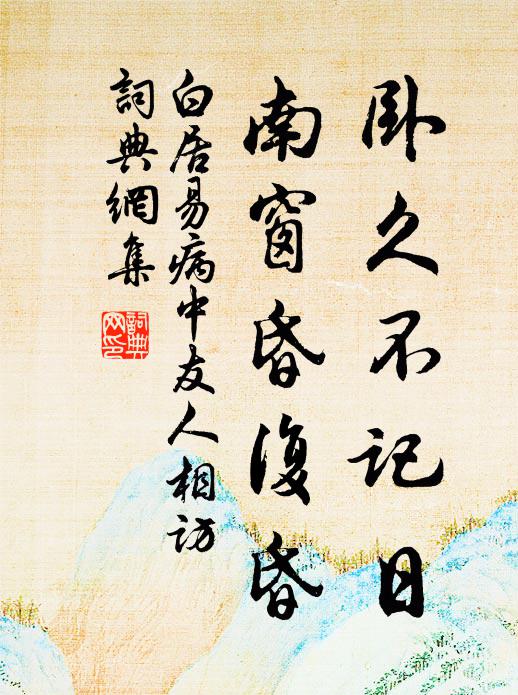 卧久不记日
南窗昏復昏
白居易病中友人相访
詞典網集
詞典网印